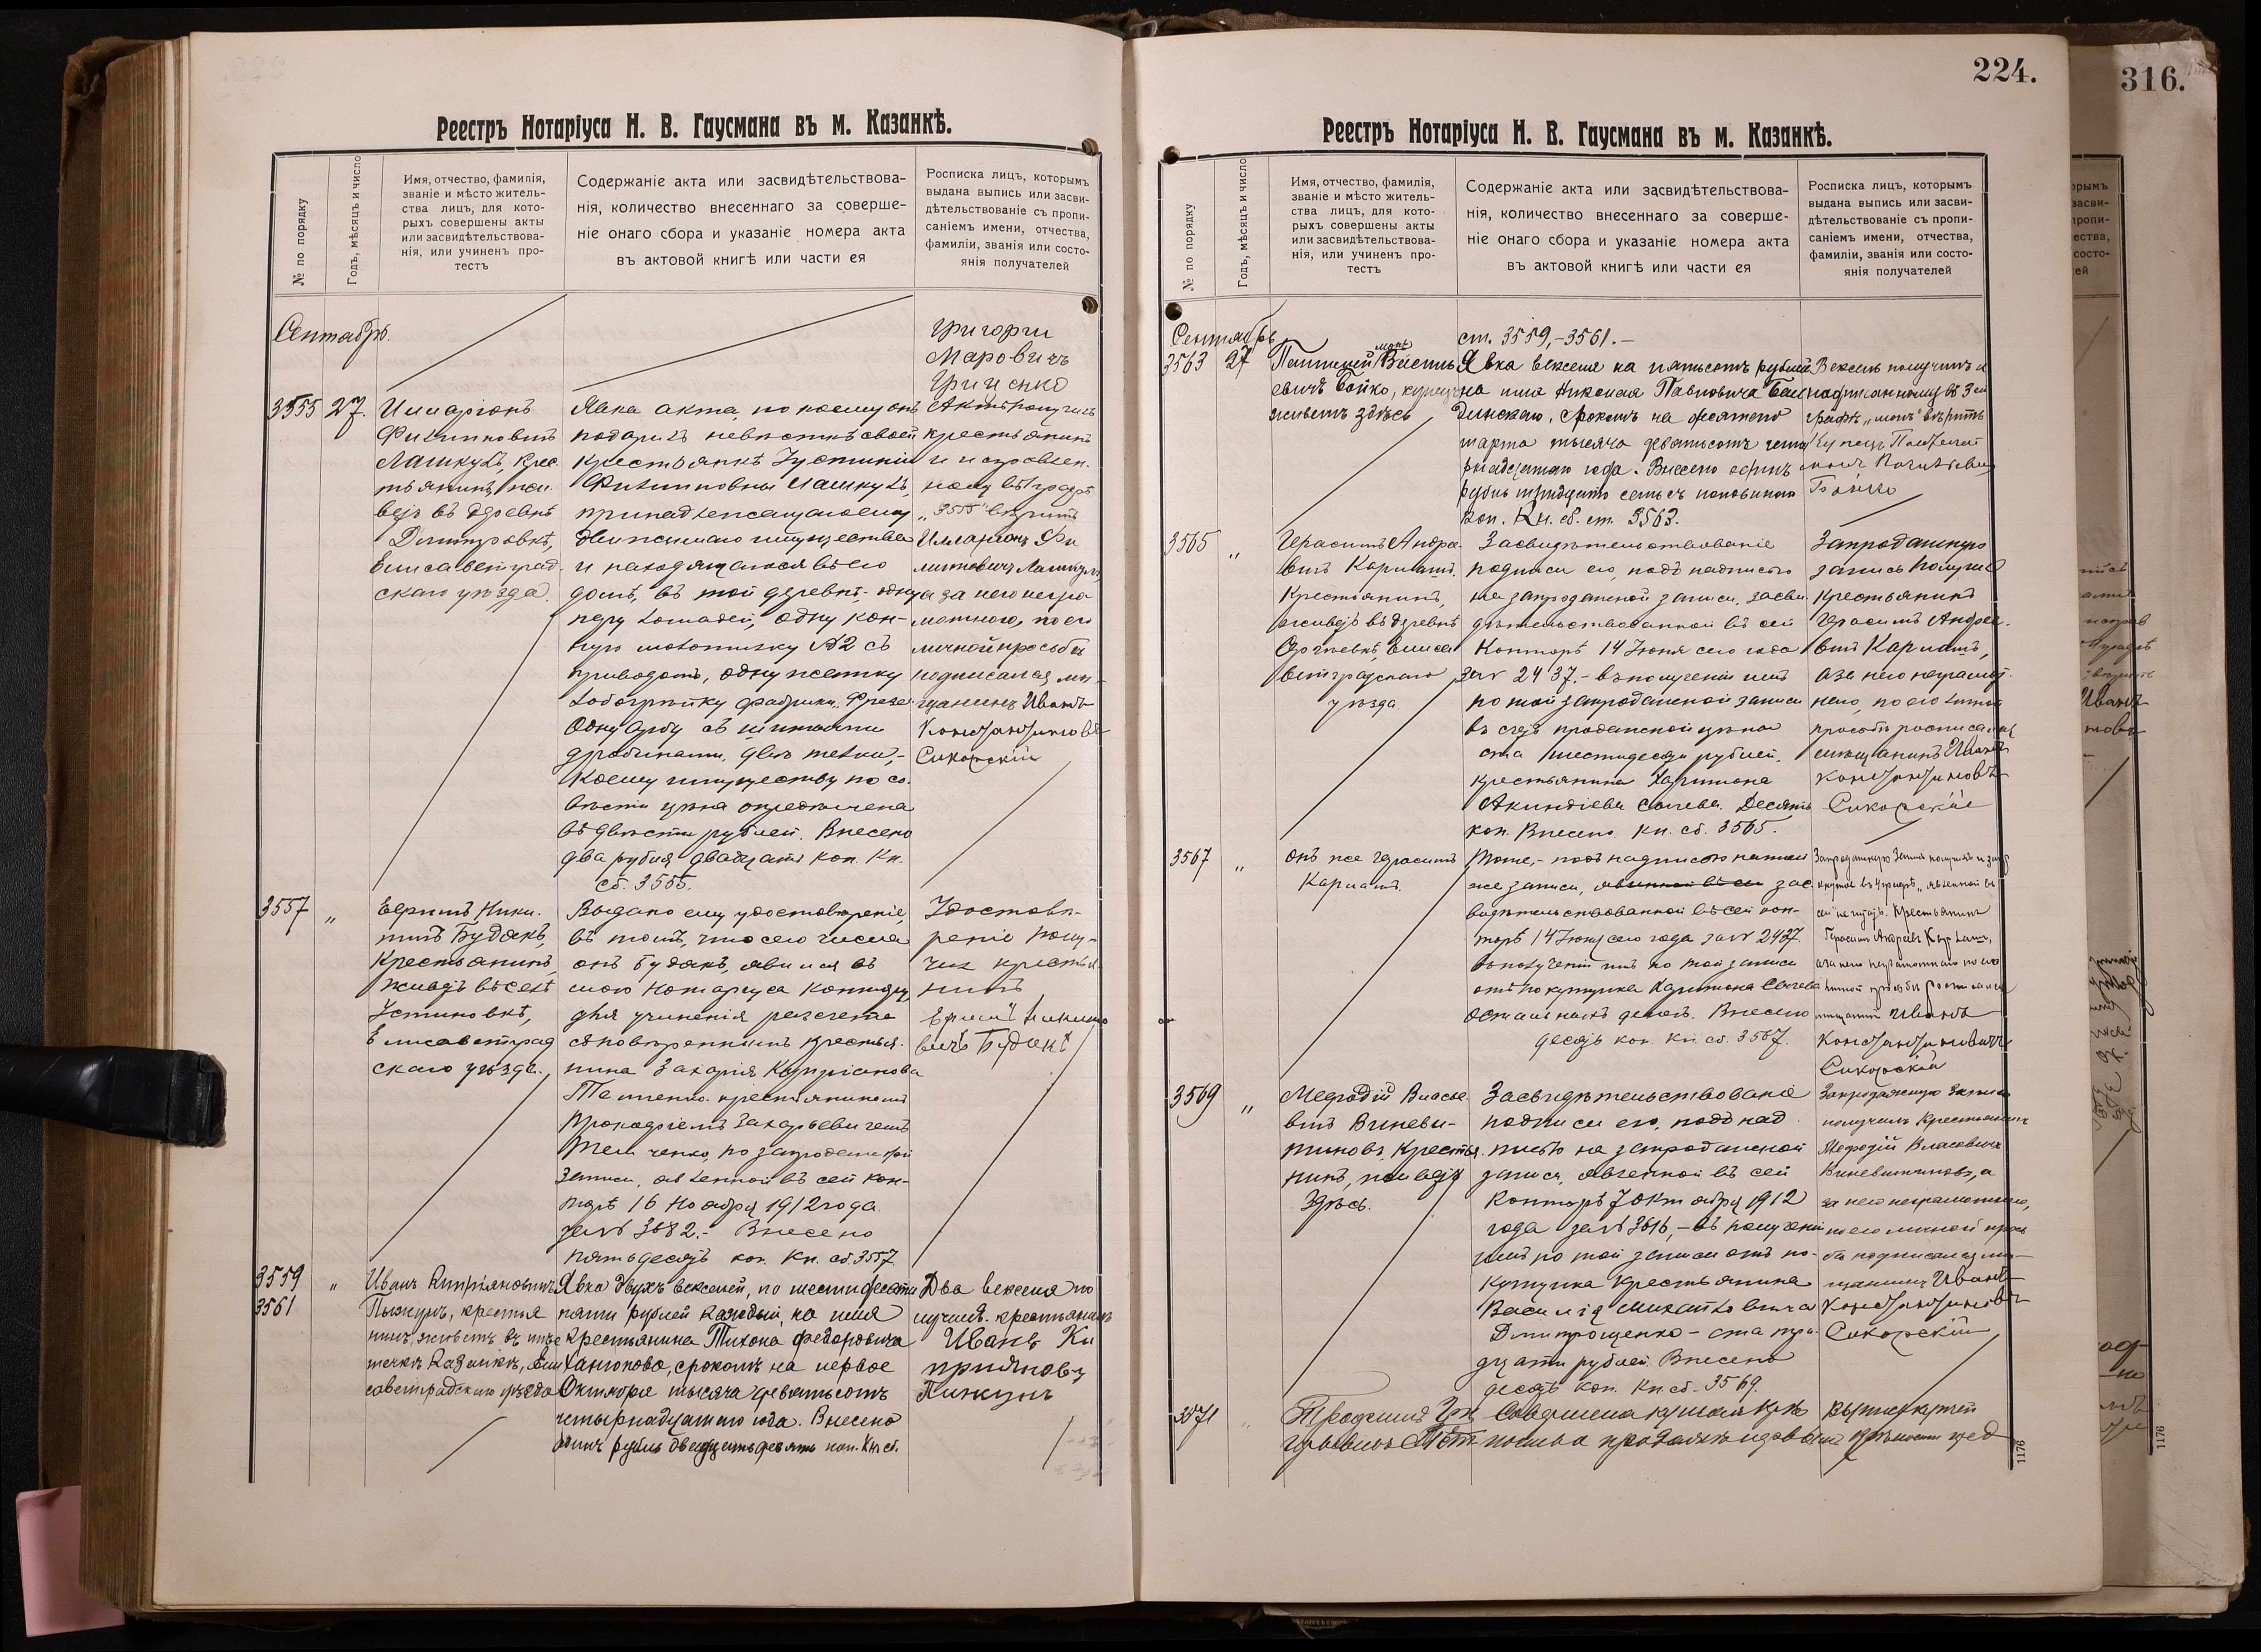 Реестръ Нотаріуса Н. В. Гаусмана въ м. Казанкѣ.
№ по порядку
Годъ, мѣсяцъ и число
Имя, отчество, фамилія,
званіе и мѣсто житель-
ства лицъ, для кото-
рыхъ совершены акты
или засвидѣтельствова-
нія, или учиненъ про-
тестъ
Содержаніе акта или засвидѣтельствова-
нія, количество внесеннаго за соверше-
ніе онаго сбора и указаніе номера акта
въ актовой книгѣ или части ея
Росписка лицъ, которымъ
выдана выпись или засви-
дѣтельствованіе съ пропи-
саніемъ имени, отчества,
фамиліи, званія или состо-
янія получателей
Сентябрь
Григорій
Маровичъ
Гриценко
3555 27.
Иларіонъ
Филипповичъ
Лашкулъ, крес-
тьянинъ, жи-
ветъ въ деревнѣ
Дмитровкѣ,
Елисаветград-
скаго уѣзда.
Явка акта, по коему онъ
подарилъ невѣсткѣ своей
крестьянкѣ Іустиніи
Филипповны Лашкулъ,
принадлежащаго ему
движимаго имущества
и находящагося въ его
домѣ, въ той деревнѣ, одну
пару лошадей, одну кон-
ную молотилку №2 съ
приводомъ, одну жатку
лобогрѣйку фабрики
одну арбу съ
дробинами, двѣ телки,-
коему имуществу по со-
вѣсти цѣна опредѣлена
въ двѣсти рублей. Внесено
два рубля двадцать коп. Кн.
сб. 3555.
Актъ получилъ
крестьянинъ
и исправлен-
ному въ графѣ
"3555" вѣрить
Илларіонъ Фи-
липповичъ Лашкулъ,
а за него негра-
мотнаго, по его
личной просьбѣ
подписался мѣ-
щанинъ Иванъ
Константиновъ
Сикорскій
3557 "
Ефимъ Ники-
тинъ Будакъ,
крестьянинъ,
живетъ въ селѣ
Устиновкѣ,
Елисаветград-
скаго уѣзда.
Выдано ему удостовѣреніе,
въ томъ, что сего числа
онъ Будакъ, явился въ
мою Нотаріуса контору
для учиненія разсчета
съ повѣреннымъ крестья-
нина Захарія Кипріанова
крестьяниномъ
Прокофіемъ Захарьевичемъ
по запродажной
записи, явленной въ сей кон-
торѣ 16 Ноября 1912 года
за № 3682.- Внесено
пятьдесятъ коп. Кн. сб. 3557.
Удостовѣ-
реніе полу-
чилъ крестья-
нинъ
Ефимъ Никити-
вичъ Будакъ
3559 "
3561
Иванъ Кипріяновичъ
Пижкунъ, крестья-
нинъ, живетъ въ мѣс-
течкѣ Казанкѣ, Ели-
саветградскаго уѣзда
Явка двухъ векселей, по шестидесяти
пяти рублей каждый, на имя
крестьянина Тихона Федоровича
Ханюкова, срокомъ на первое
Октября тысяча девятьсотъ
четырнадцатаго года. Внесено
одинъ рубль двадцать девять коп. Кн. сб.
Два векселя по-
лучилъ крестьянинъ
Иванъ Ки
прияновъ
Пижкунъ
224.
Реестръ Нотаріуса Н. В. Гаусмана въ м. Казанкѣ.
№ по порядку
Годъ, мѣсяцъ и число
Имя, отчество, фамилія,
званіе и мѣсто житель-
ства лицъ, для кото-
рыхъ совершены акты
или засвидѣтельствова-
нія, или учиненъ про-
тестъ
Содержаніе акта или засвидѣтельствова-
нія, количество внесеннаго за соверше-
ніе онаго сбора и указаніе номера акта
въ актовой книгѣ или части ея
Росписка лицъ, которымъ
выдана выпись или засви-
дѣтельствованіе съ пропи-
саніемъ имени, отчества,
фамиліи, званія или состо-
янія получателей
Сентябрь
ст. 3559,-3561.-
3563 27
евичъ Бойко, купецъ
живетъ здѣсь
Явка векселя на пятьсотъ рублей
на имя Николая Павловича
срокомъ на десятое
марта тысяча девятьсотъ четы-
рнадцатаго года. Внесено одинъ
рубль тридцать семь съ половиною
коп. Кн. сб. ст. 3563.
Вексель получилъ и
надписанному въ 3ей
графѣ „монъ" вѣрить
Купецъ
Бойко
3565 "
Герасимъ Андре-
евъ Карнашъ,
крестьянинъ,
живетъ въ деревнѣ
Елиса-
ветградскаго
уѣзда
Засвидѣтельствованіе
подписи его, подъ надписью
на запродажной записи, засви-
дѣтельствованной въ сей
Конторѣ 14 Іюня сего года
за № 2437.- въ полученіи имъ
по той запродажной записи
въ счетъ продажной цѣны
ста шестидесяти рублей,
крестьянина Харитона
Акиндіева Сычева. Десять
коп. Внесено. Кн. сб. 3565.
Запродажную
запись получилъ
крестьянинъ
Герасимъ Андре-
евъ Карнашъ,
а за него неграмот-
наго, по его личной
просьбѣ росписался
мѣщанинъ Иванъ
Константиновъ
Сикорскій
3567 "
Онъ же Герасимъ
Карнашъ.
Тоже,- подъ надписью на той
же записи, явленной въ сей зас-
видѣтельствованной въ сей кон-
торѣ 14 Іюня сего года за № 2437.
въ полученіи имъ по той записи
отъ покупщика Харитона Сычева
остальныхъ денегъ. Внесено
десять коп. Кн. сб. 3567.
Запродажную запись получилъ и зачер-
кнутое въ 4 графѣ „явленной въ
сей" не читать. Крестьянинъ
Герасимъ Андреевъ Карнашъ,
а за него неграмотнаго по его
личной просьбѣ росписался
мѣщанинъ Иванъ
Константиновичъ
Сикорскій
3569 "
Мефодій Власье-
вичъ Виневи-
тиновъ, крестья-
нинъ, живетъ
здѣсь.
Засвидѣтельствованіе
подписи его, подъ над-
писью на запродажной
записи, явленной въ сей
Конторѣ 7 Октября 1912
года за № 3616,- въ полученіи
имъ по той записи отъ по-
купщика крестьянина
Василія Михайловича
Дмитрощенко - ста три-
дцати рублей. Внесено
десять коп. Кн. сб. 3569.
Запродажную запись
получилъ крестьянинъ
Мефодій Власьевичъ
Виневитиновъ, а
за него неграмотнаго,
по его личной прось-
бѣ подписался мѣ-
щанинъ Иванъ
Константиновъ
Сикорскій
3571 "
Совершена купчая крѣ-
1176
316.
1176